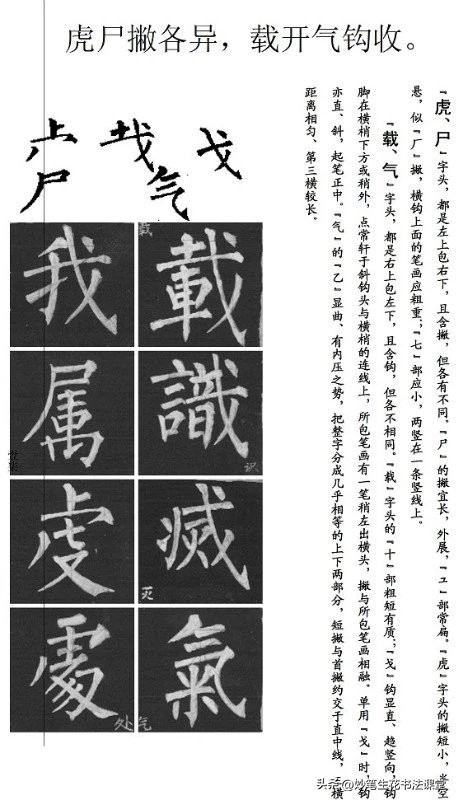 虎尸撇各异，载开气钩收。
『虎、尸』字头，都是左上包右下，且含撇，但各有不同。『尸』的撇宜长，外展，『ユ』部常扁。『虎』字头的撇短小，半空
悬，似『厂』撇，横钩上面的笔画应粗重，『七』部应小，两竖在一条竖线上。
『载、气』字头，都是右上包左下，且含钩，但各不相同。『载』字头的『十』部粗短有质，『戈』钩显直、趋竖向，钩
脚在横梢下方或稍外，点常轩于斜钩头与横梢的连线上，所包笔画有一笔稍左出横头，撇与所包笔画相融。单用『戈』时，钩
亦直、斜，起笔正中。『气』的『乙』显曲、有内压之势，把整字分成几乎相等的上下两部分，短撇与首撇约交于直中线，三横
距离相匀、第三横较长。
尸
气
戈
載
载
識
识
滅
灭
氣
气
我
属
虔
處
处
头条@妙笔生花书法课堂